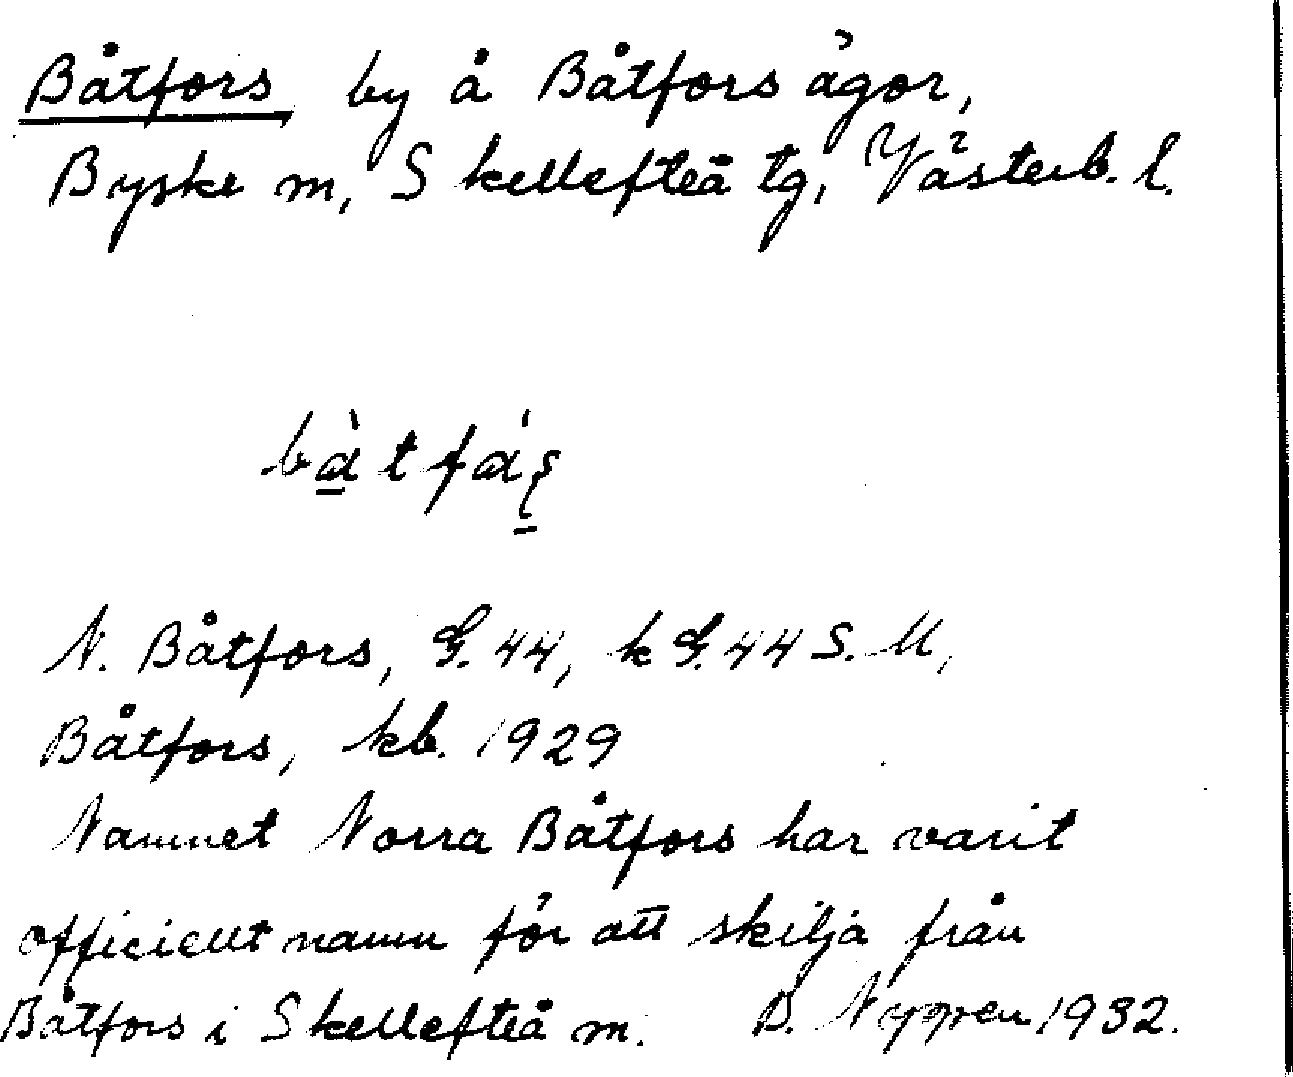 Båtfors by å Båtfors ägor,
Byske m, Skellefteå tg, Västerb. l.
bàtfáş
N. Båtfors, G. 44, k G. 44 S. U,
Båtfors, kb. 1929
Namnet Norra Båtfors har varit
officiellt namn för att skilja från
Båtfors i Skellefteå m. D. Nygren 1932.